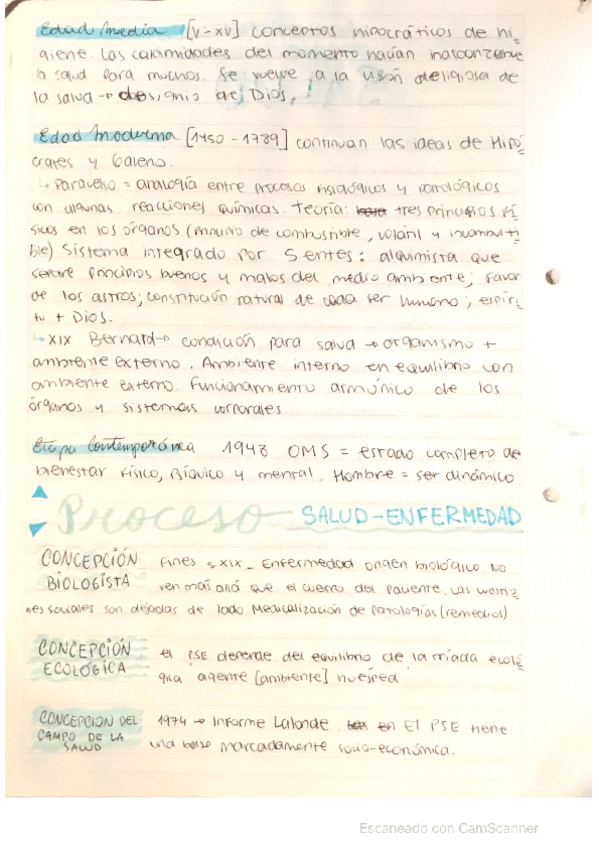 Edad media [V-XV] conceptos hipocráticos de hi_
giene. Las calamidades del momento hacían inalcanzable
la salud para muchos. Se vuelve a la visión religiosa de
la salud → designio de Dios.
Edad Moderna [1450-1789] continuan las ideas de Hipó_
crates y Galeno.
↳ Paracelso = analogía entre procesos fisiológicos y patológicos
con algunas reacciones químicas. Teoría: tres principios fí_
sicos en los órganos (principio de combustible, volátil y incombusti_
ble) Sistema integrado por 5 entes: alquimista que
separe principios buenos y malos del medio ambiente; favor
de los astros; constitución natural de cada ser humano; espíri_
tu + Dios.
↳ XIX Bernard → condición para salud → organismo +
ambiente externo. Ambiente interno en equilibrio con
ambiente externo. Funcionamiento armónico de los
órganos y sistemas corporales
Etapa Contemporánea 1948 OMS = estado completo de
bienestar físico, psíquico y mental. Hombre = ser dinámico
Proceso SALUD-ENFERMEDAD
CONCEPCIÓN BIOLOGISTA Fines s XIX_ Enfermedad origen biológico. No
ven más allá que el cuerpo del paciente. Las
nes sociales son dejadas de lado. Medicalización de patologías (remedios).
CONCEPCIÓN ECOLÓGICA el PSE depende del equilibrio de la tríada ecoló_
gica agente [ambiente] huésped
CONCEPCION DEL CAMPO DE LA SALUD 1974 → Informe Lalonde. El PSE tiene
una base marcadamente socio-económica.
Escaneado con CamScanner